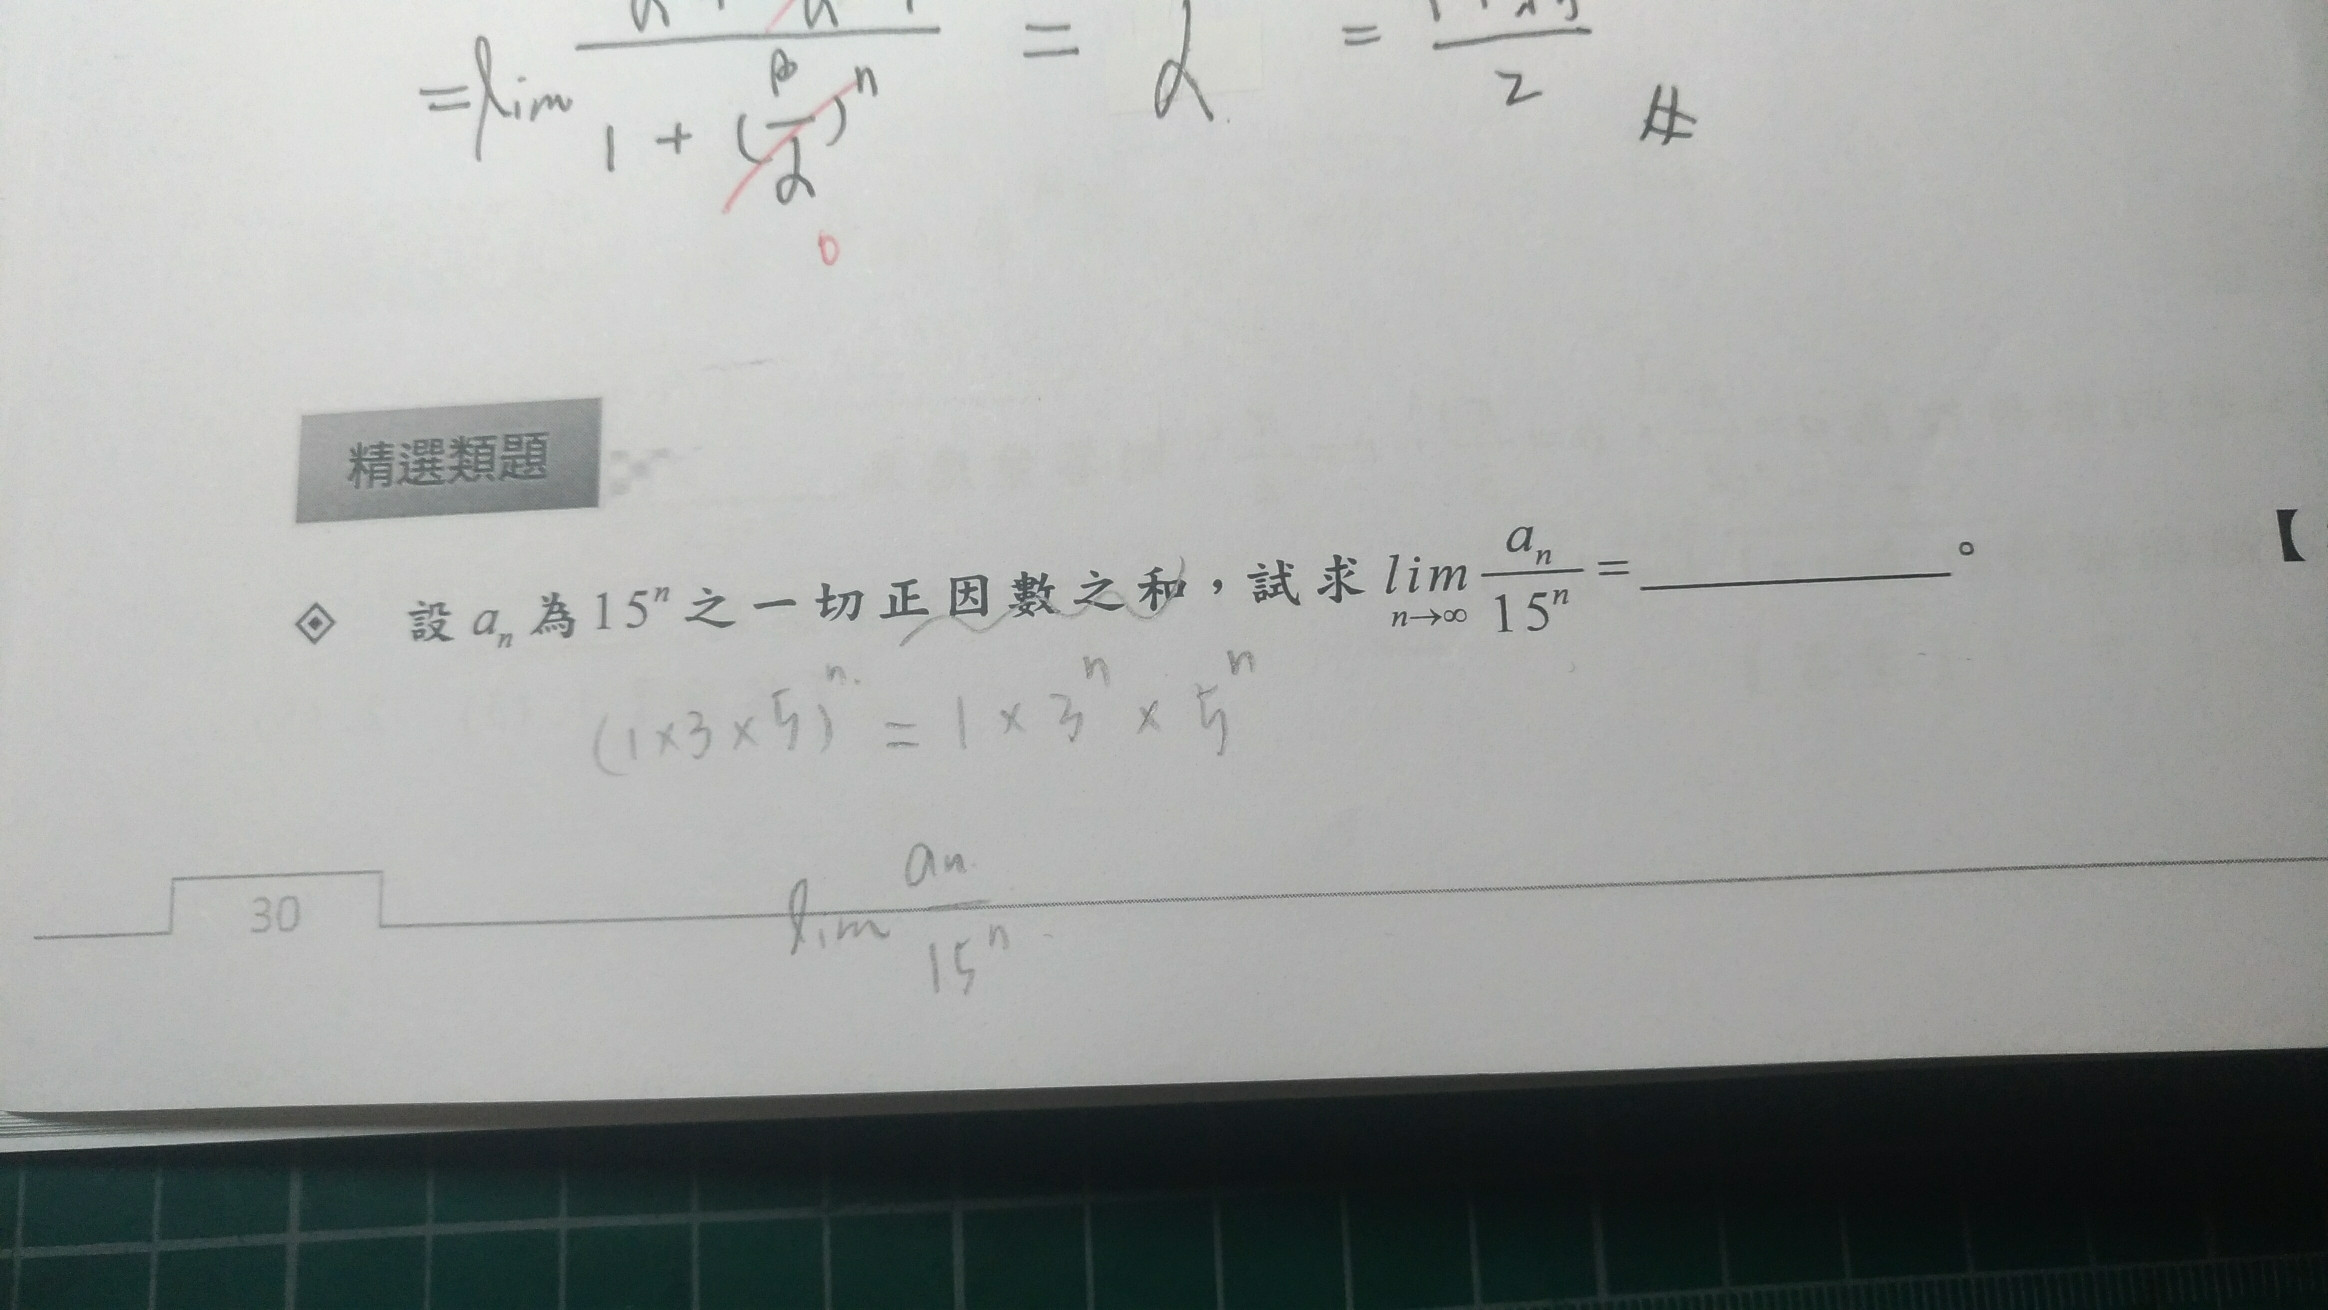 = lim / 1 + (β/α)^n = α = / 2 #
0
精選類題
設 a_n 為 15^n 之一切正因數之和，試求 lim_{n→∞} a_n/15^n = ________。 【
(1×3×5)^n = 1 × 3^n × 5^n
lim a_n/15^n
30